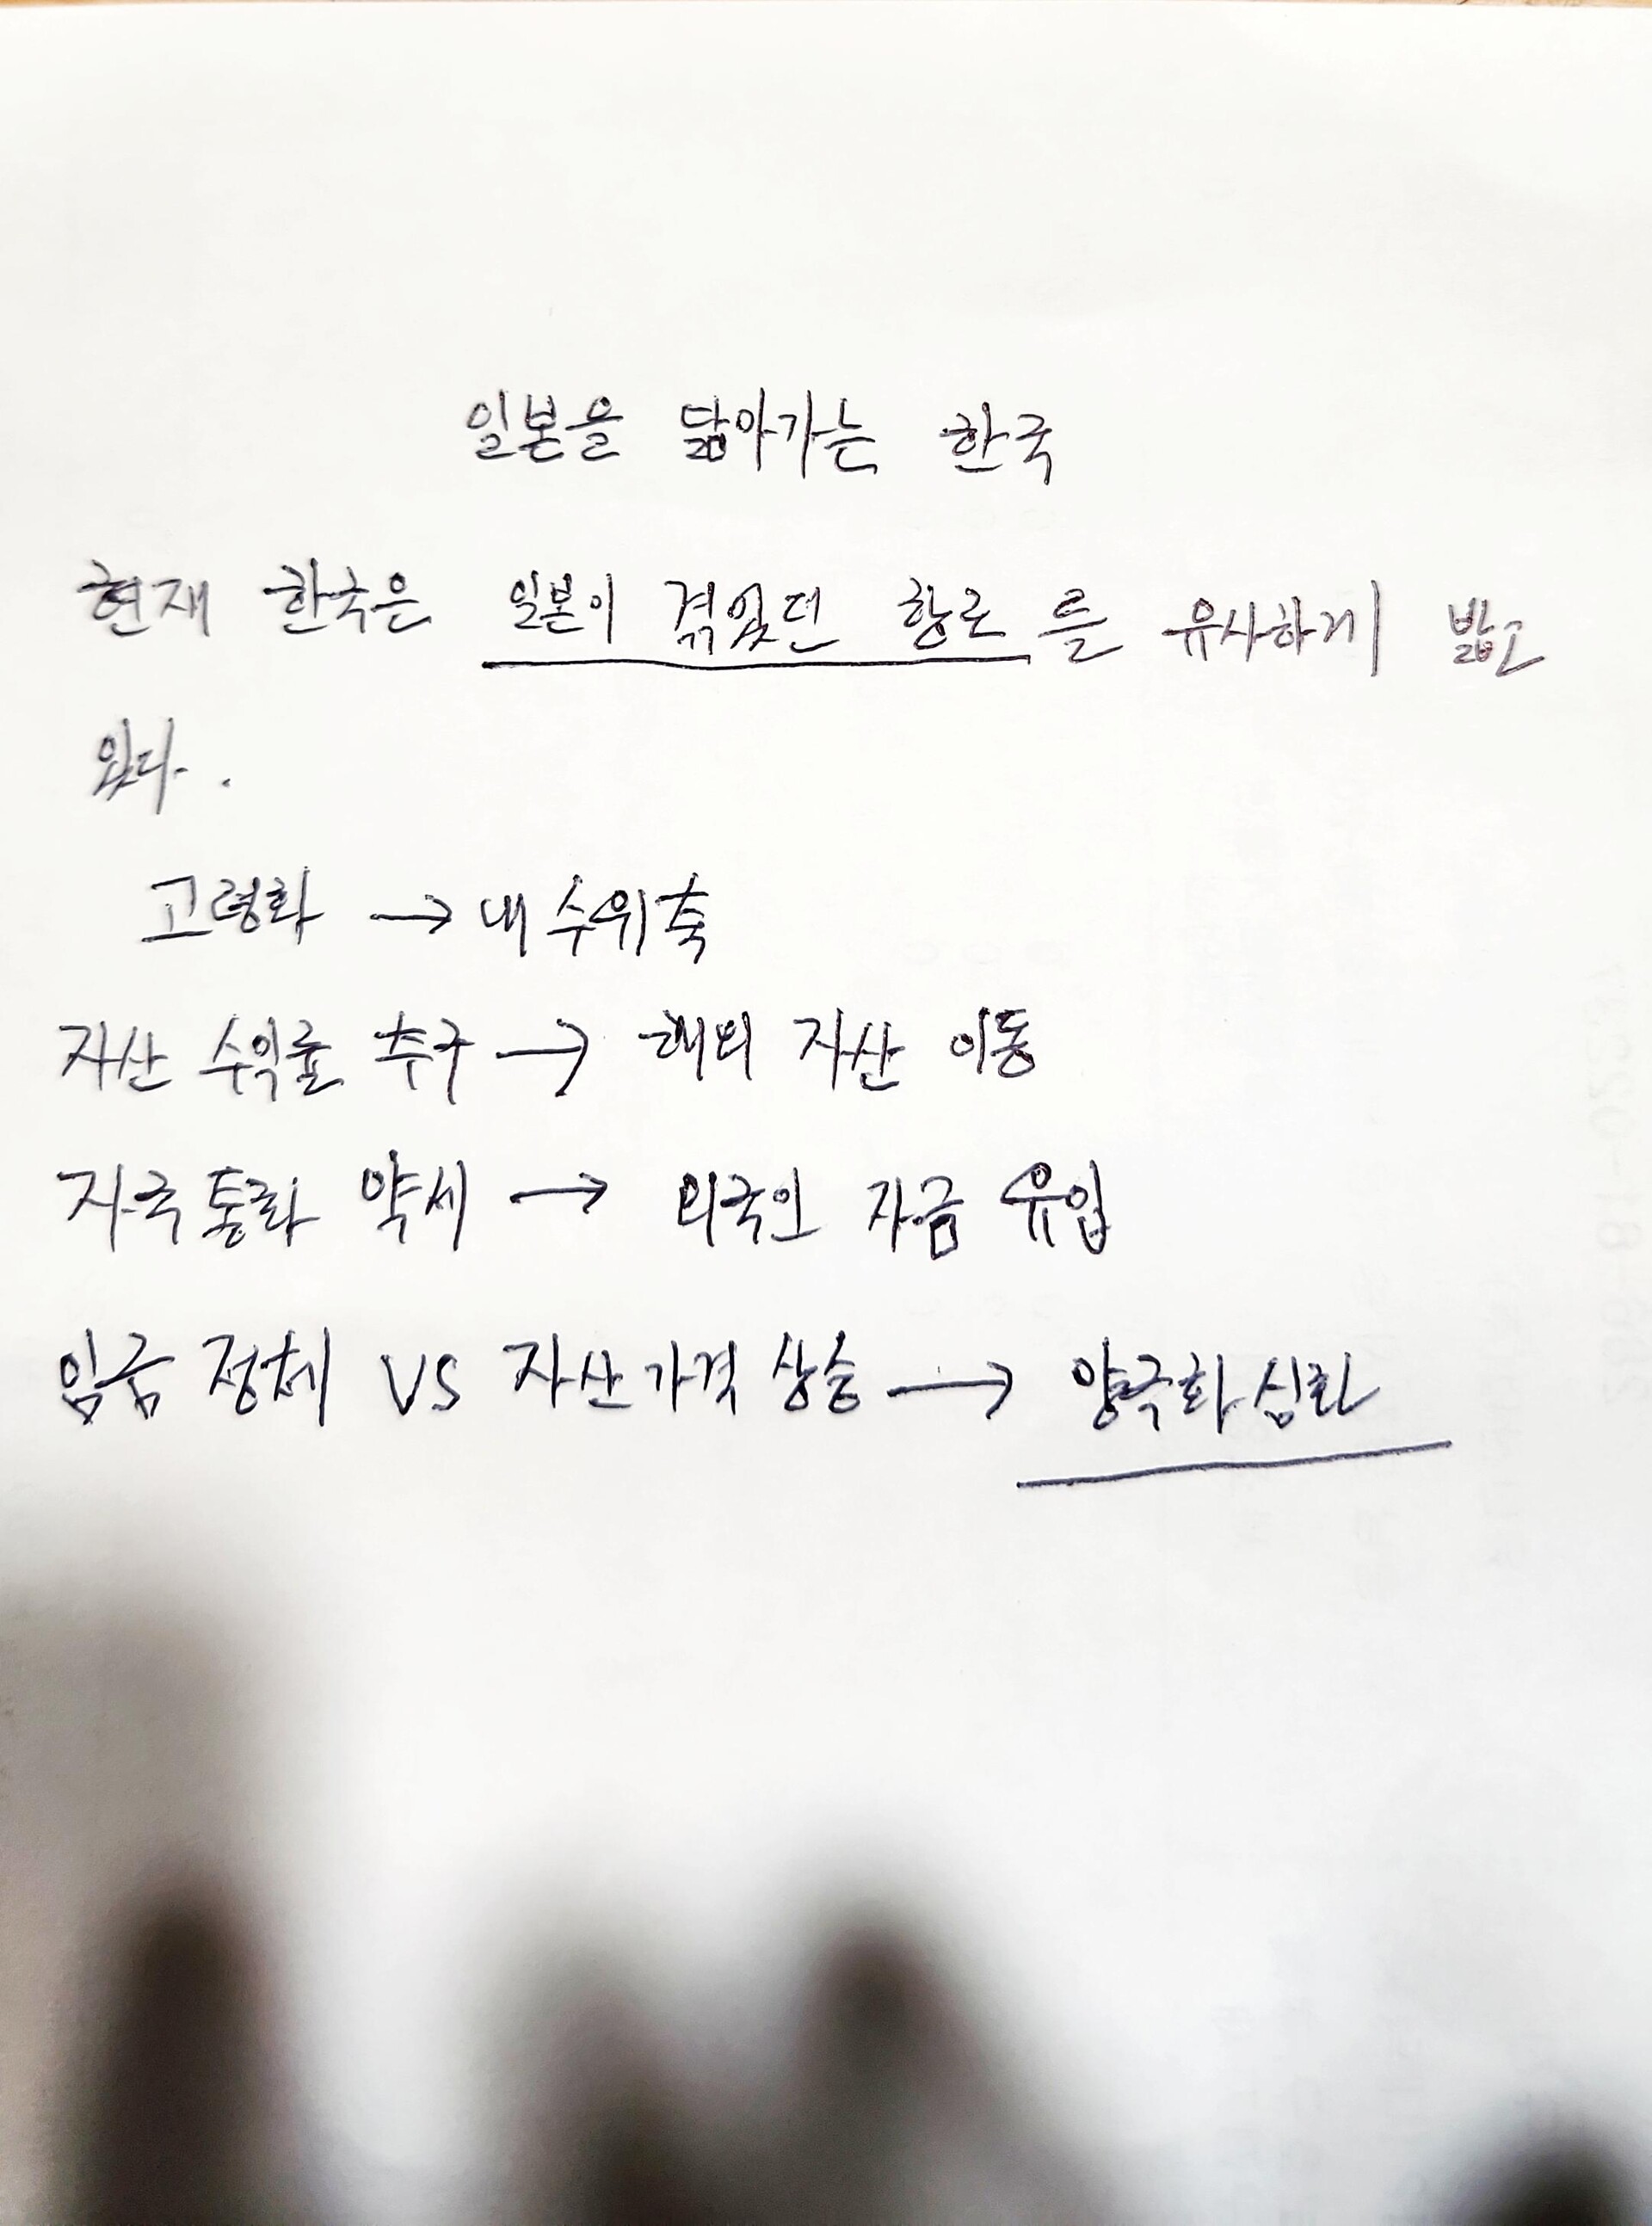 일본을 닮아가는 한국
현재 한국은 일본이 겪었던 항로를 유사하게 밟고
있다.
고령화 → 내수위축
자산 수익률 추구 → 해외 자산 이동
자국통화 약세 → 외국인 자금 유입
임금 정체 VS 자산가격 상승 → 양극화 심화